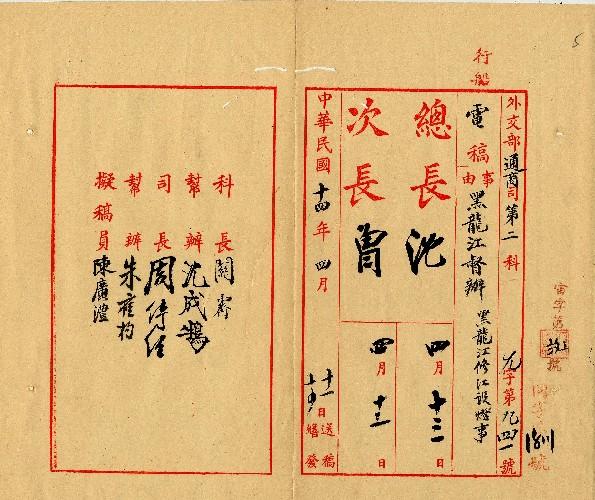 5
行船
外交部通商司第二科
九字第九四一號
電稿
事由
黑龍江督辦
黑龍江修江設燈事
總長沈
四月十三日
次長曾
四月十三日
中華民國十四年四月
十一日送稿
日繕發
科長關霽
幫辦沈成鵠
司長周傳經
幫辦朱
擬稿員陳廣澧